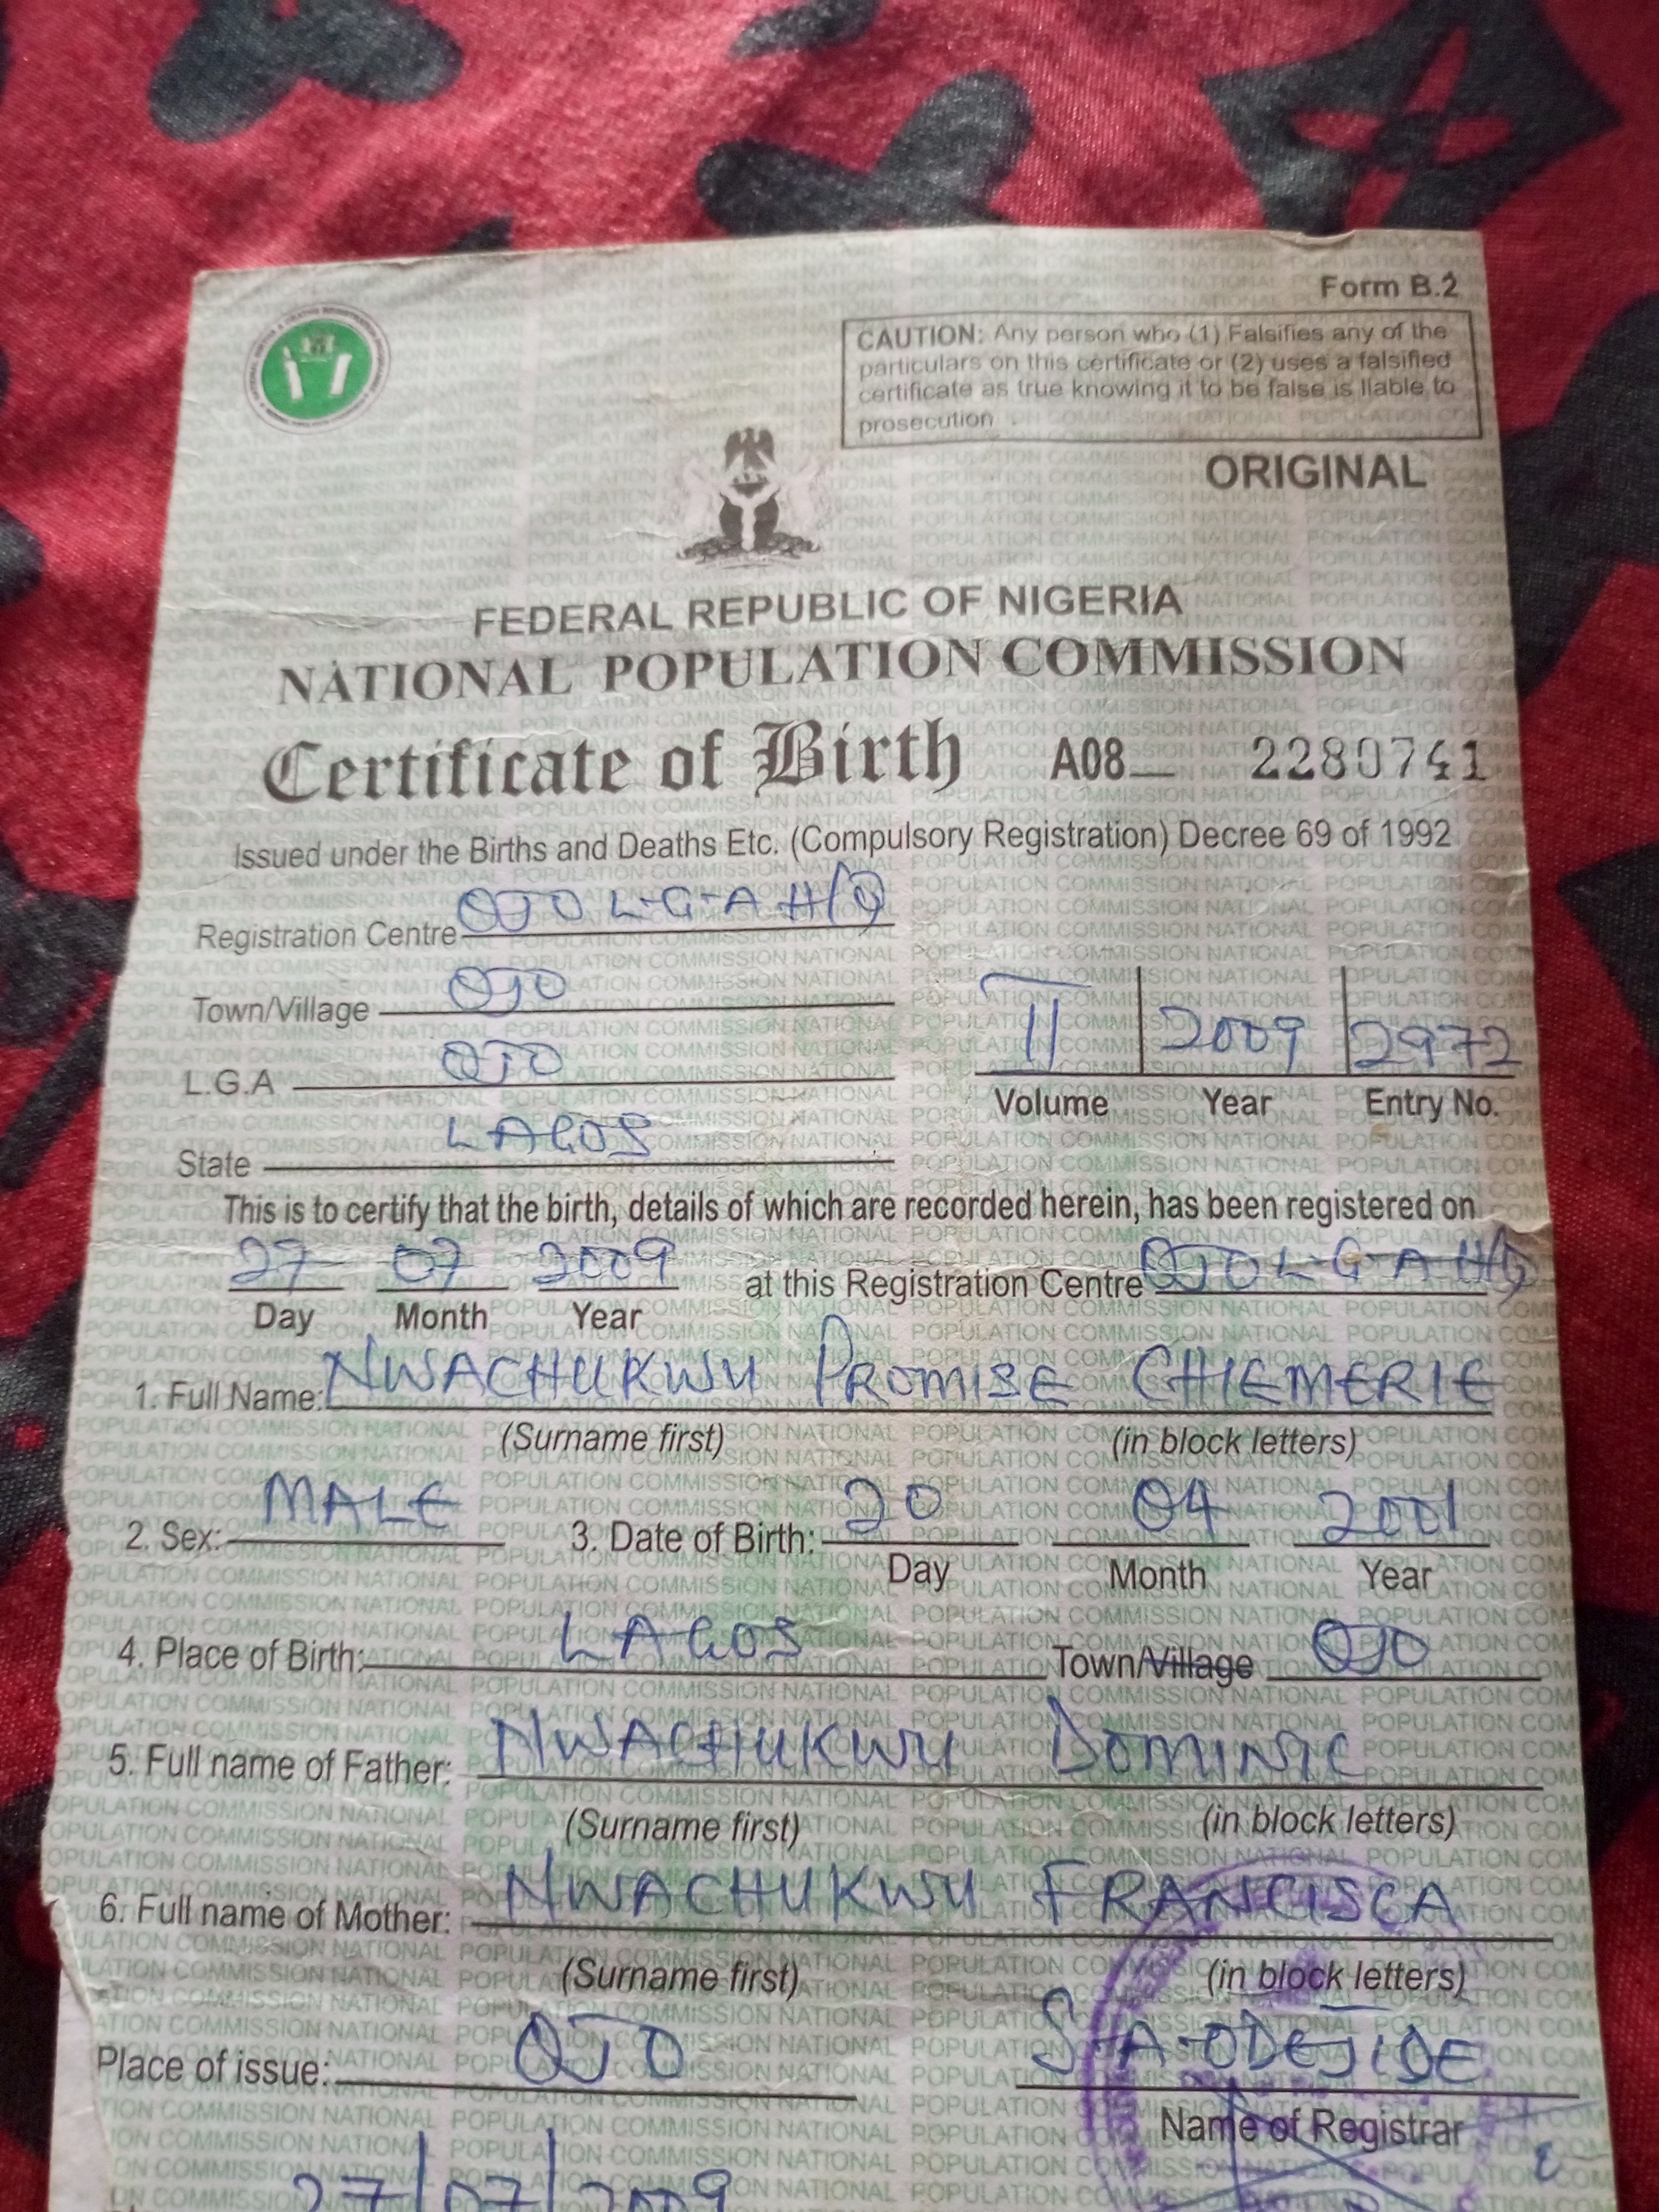 Form B.2
CAUTION: Any person who (1) Falsifies any of the
particulars on this certificate or (2) uses a falsified
certificate as true knowing it to be false is liable to
prosecution
ORIGINAL
FEDERAL REPUBLIC OF NIGERIA
NATIONAL POPULATION COMMISSION
Certificate of Birth A08 2280741
Issued under the Births and Deaths Etc. (Compulsory Registration) Decree 69 of 1992
Registration Centre OJO L-G-A H/Q
Town/Village OJO
L.G.A OJO
II 2009 2972
Volume Year Entry No.
State LAGOS
This is to certify that the birth, details of which are recorded herein, has been registered on
27 07 2009 at this Registration Centre OJO L-G-A H/Q
Day Month Year
1. Full Name: NWACHUKWU PROMISE CHIEMERIE
(Surname first) (in block letters)
2. Sex: MALE 3. Date of Birth: 20 04 2001
Day Month Year
4. Place of Birth: LAGOS Town/Village OJO
5. Full name of Father: NWACHUKWU DOMINIC
(Surname first) (in block letters)
6. Full name of Mother: NWACHUKWU FRANCISCA
(Surname first) (in block letters)
Place of issue: OJO S-A-ODEJIDE
Name of Registrar
27/07/2009